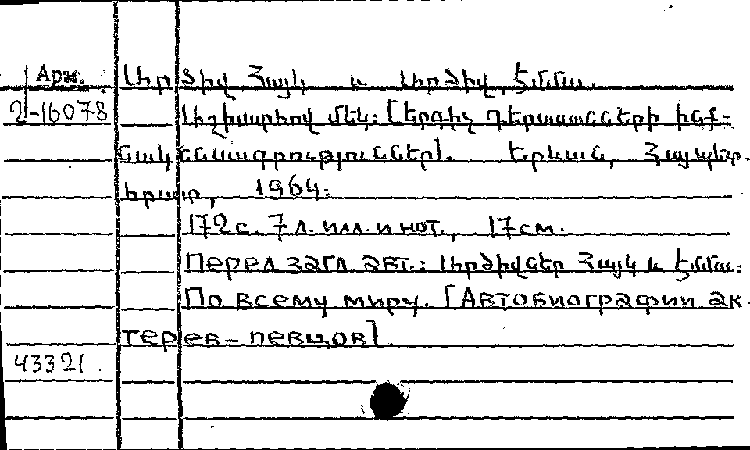 Арм.
2-16078
Արծիվ, Հայկ և Արծիվ, Էմմա.
Աշխարհով մեկ: [Երգիչ դերասանների ինք-
նակենսագրություններ]. Երևան, Հայպետ-
հրատ, 1964.
172 с. 7 л. илл. и нот., 17 см.
Перед загл. авт.: Արծիվներ Հայկ և Էմմա.
По всему миру. [Автобиографии ак-
терев-певцов]
43321.